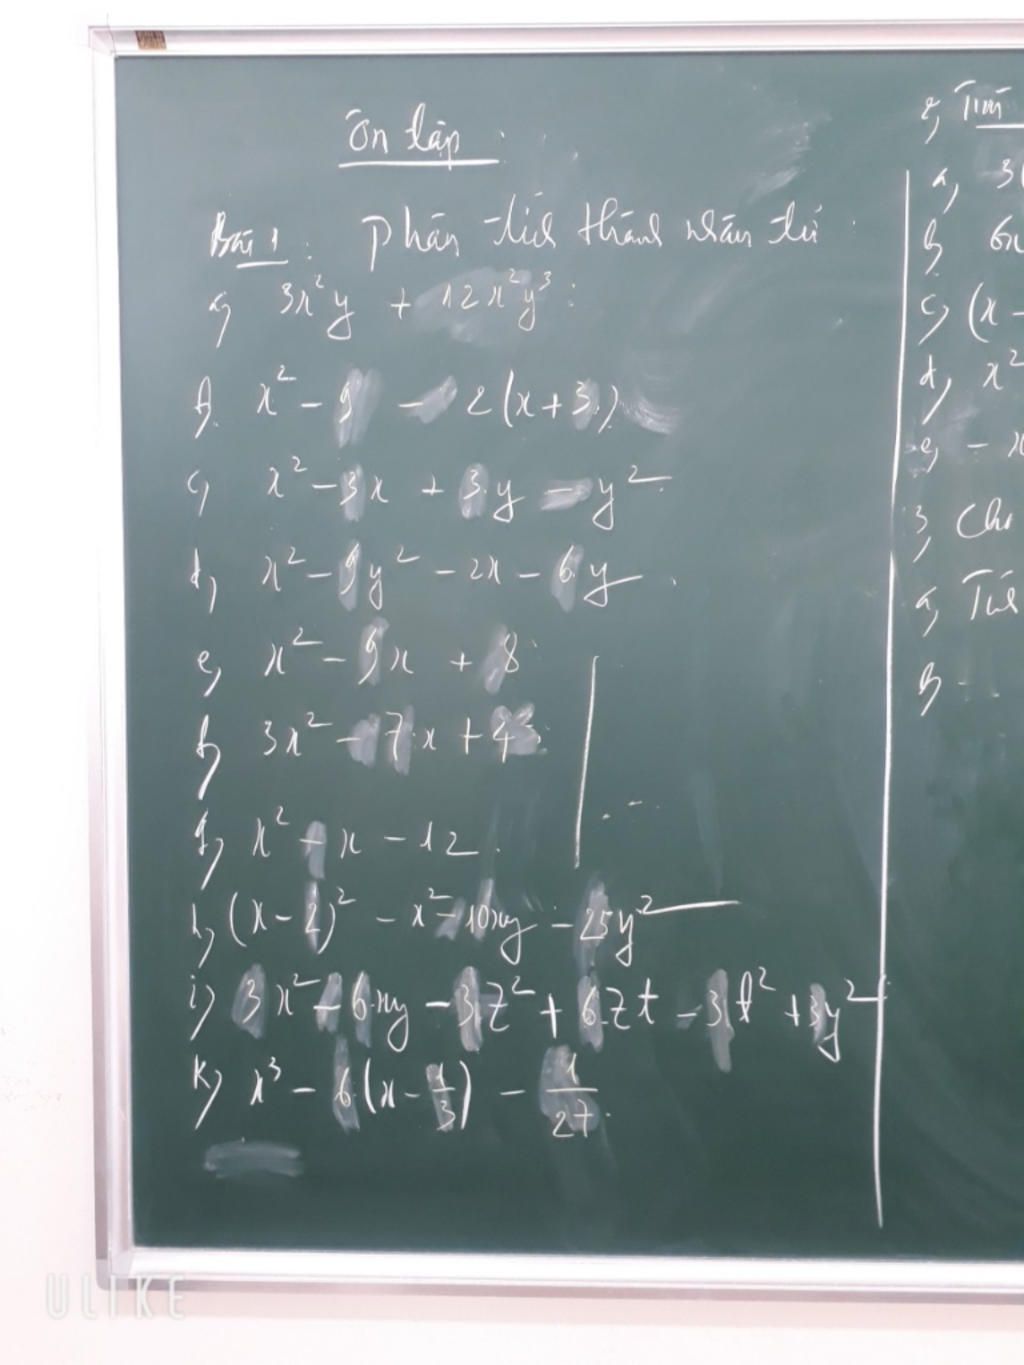 Ôn tập :
Bài 1 : Phân tích thành nhân tử
a, 3x²y + 12x²y³ :
b, x² - 9 - 2(x+3)
c, x² - 3x + 3y - y²
d, x² - 9y² - 2x - 6y
e, x² - 9x + 8
f, 3x² - 7x + 4
g, x² - x - 12
h, (x-2)² - x² - 10xy - 25y²
i, 3x² - 6xy - 3z² + 6zt - 3t² + 3y²
k, x³ - 6(x - 1/3) - 1/27
2, Tìm
a, 3(
b, 6x
c, (x -
d, x²
e, - x
3, Ch
a, Tí
b
ULIKE